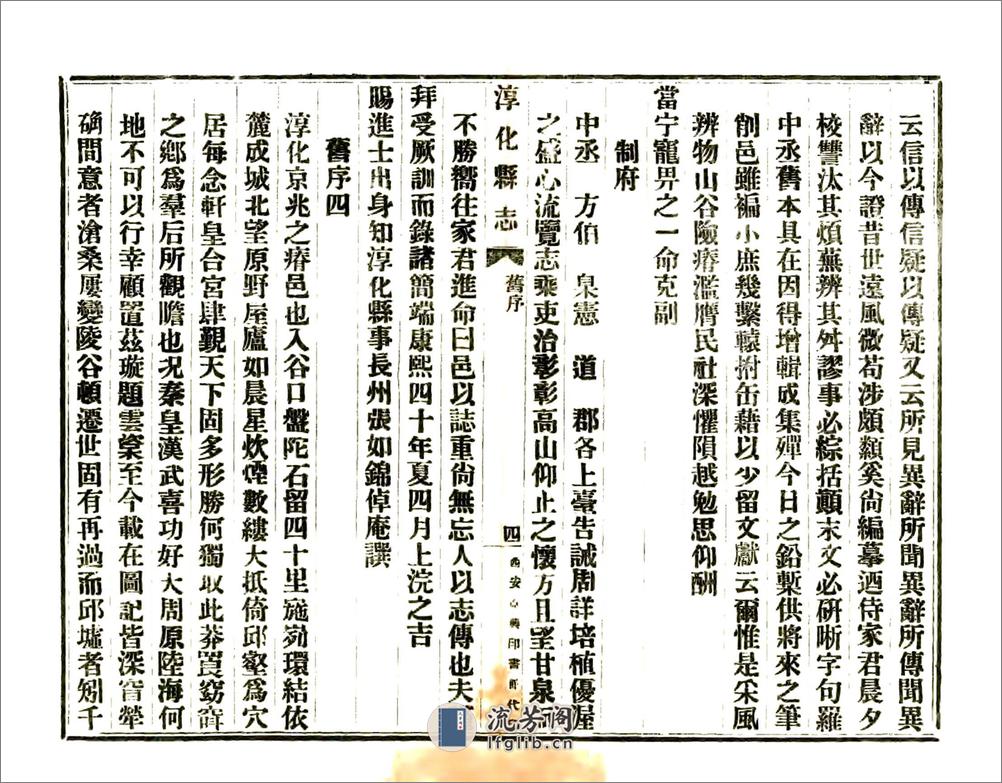 云信以傳信疑以傳疑又云所見異辭所聞異辭所傳聞異
辭以今證昔世遠風微苟涉頗纇奚尙編摹迺侍家君晨夕
校讐汰其煩蕪辨其舛謬事必綜括顚末文必硏晰字句羅
中丞舊本具在因得增輯成集殫今日之鉛槧供將來之筆
削邑雖褊小庶幾繫轅拊缶藉以少留文獻云爾惟是采風
辨物山谷險瘠濫膺民社深懼隕越勉思仰酬
當宁寵畀之一命克副
制府
中丞 方伯 臬憲 道 郡各上臺告誡周詳培植優渥
之盛心流覽志乘吏治彰彰高山仰止之懷方且望甘泉
不勝嚮往家君進命曰邑以誌重尙無忘人以志傳也夫
拜受厥訓而錄諸簡端康熙四十年夏四月上浣之吉
賜進士出身知淳化縣事長州張如錦倬庵譔
舊序四
淳化京兆之瘠邑也入谷口盤陀石留四十里施匊環結依
麓成城北望原野屋廬如晨星炊煙數縷大抵倚邱壑爲穴
居每念軒皇合宮肆覲天下固多形勝何獨取此莽罠窈窅
之鄕爲羣后所觀瞻也况秦皇漢武喜功好大周原陸海何
地不可以行幸顧置茲璇題雲棨至今載在圖記皆深窅犖
确間意者滄桑屢變陵谷頓遷世固有再過而邱墟者矧千
淳化縣志
舊序
四
西安 興印書 代
流芳阁
lfglib.cn